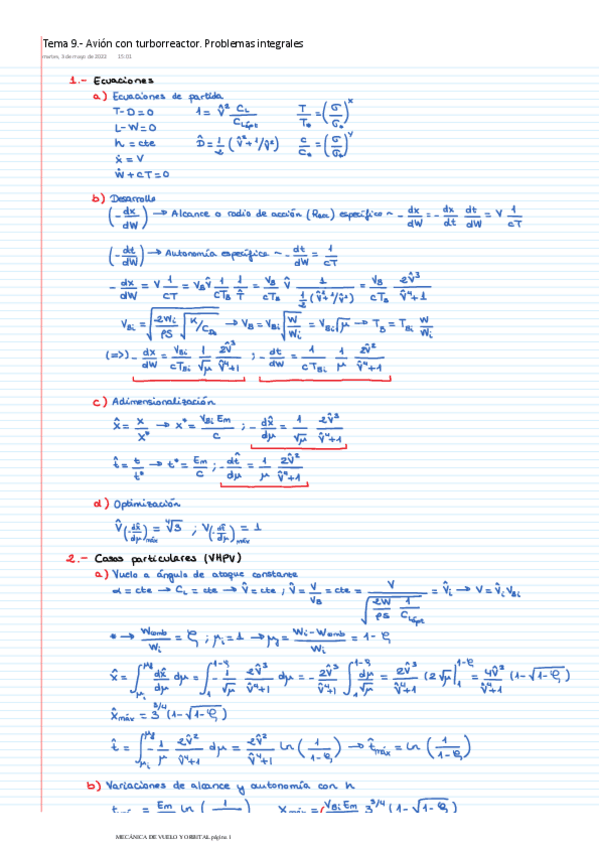 Tema 9.- Avión con turborreactor. Problemas integrales
martes, 3 de mayo de 2022 15:01
1.- Ecuaciones
a) Ecuaciones de partida
T-D=0 1 = V̂² C_L/C_Lópt T/T₀ = (σ/σ₀)^x
L-W=0
h = cte D̂ = 1/2 (V̂² + 1/V̂²) c/c₀ = (σ/σ₀)^y
ẋ = V
Ẇ + cT = 0
b) Desarrollo
(-dx/dW) → Alcance o radio de acción específico ~ -dx/dW = -dx/dt dt/dW = V 1/cT
(-dt/dW) → Autonomía específica ~ -dt/dW = 1/cT
-dx/dW = V 1/cT = V_B V̂ 1/cT_B 1/T̂ = V_B/cT_B V̂ 1/(1/2 (V̂² + 1/V̂²)) = V_B/cT_B 2V̂³/(V̂⁴+1)
V_Bi = √(2Wi/ρS √(K/C_D₀)) → V_B = V_Bi √(W/Wi) = V_Bi √μ → T_B = T_Bi W/Wi
(=>) -dx/dW = V_Bi/cT_Bi 1/√μ 2V̂³/(V̂⁴+1) ; -dt/dW = 1/cT_Bi 1/μ 2V̂²/(V̂⁴+1)
c) Adimensionalización
x̂ = x/x* → x* = V_Bi Em/c ; -dx̂/dμ = 1/√μ 2V̂³/(V̂⁴+1)
t̂ = t/t* → t* = Em/c ; -dt̂/dμ = 1/μ 2V̂²/(V̂⁴+1)
d) Optimización
V̂(-dx̂/dμ)máx = ⁴√3 ; V(-dt̂/dμ)máx = 1
2.- Casos particulares (VHPV)
a) Vuelo a ángulo de ataque constante
α = cte → C_L = cte → V̂ = cte ; V̂ = V/V_B = cte = V/√(2W/ρS 1/C_Lópt) = V̂i → V = V̂i V_Bi
* → Wcomb/Wi = ζ ; μi = 1 → μf = (Wi - Wcomb)/Wi = 1-ζ
x̂ = ∫_μi^μf dx̂/dμ dμ = ∫_1^(1-ζ) -1/√μ 2V̂³/(V̂⁴+1) dμ = -2V̂³/(V̂⁴+1) ∫_1^(1-ζ) dμ/√μ = 2V̂³/(V̂⁴+1) (2√μ)|_1^(1-ζ) = 4V̂³/(V̂⁴+1) (1-√(1-ζ))
x̂máx = 3^(3/4) (1-√(1-ζ))
t̂ = ∫_μi^μf -1/μ 2V̂²/(V̂⁴+1) dμ = 2V̂²/(V̂⁴+1) ln (1/(1-ζ)) → t̂máx = ln (1/(1-ζ))
b) Variaciones de alcance y autonomía con h
MECÁNICA DE VUELO Y ORBITAL página 1